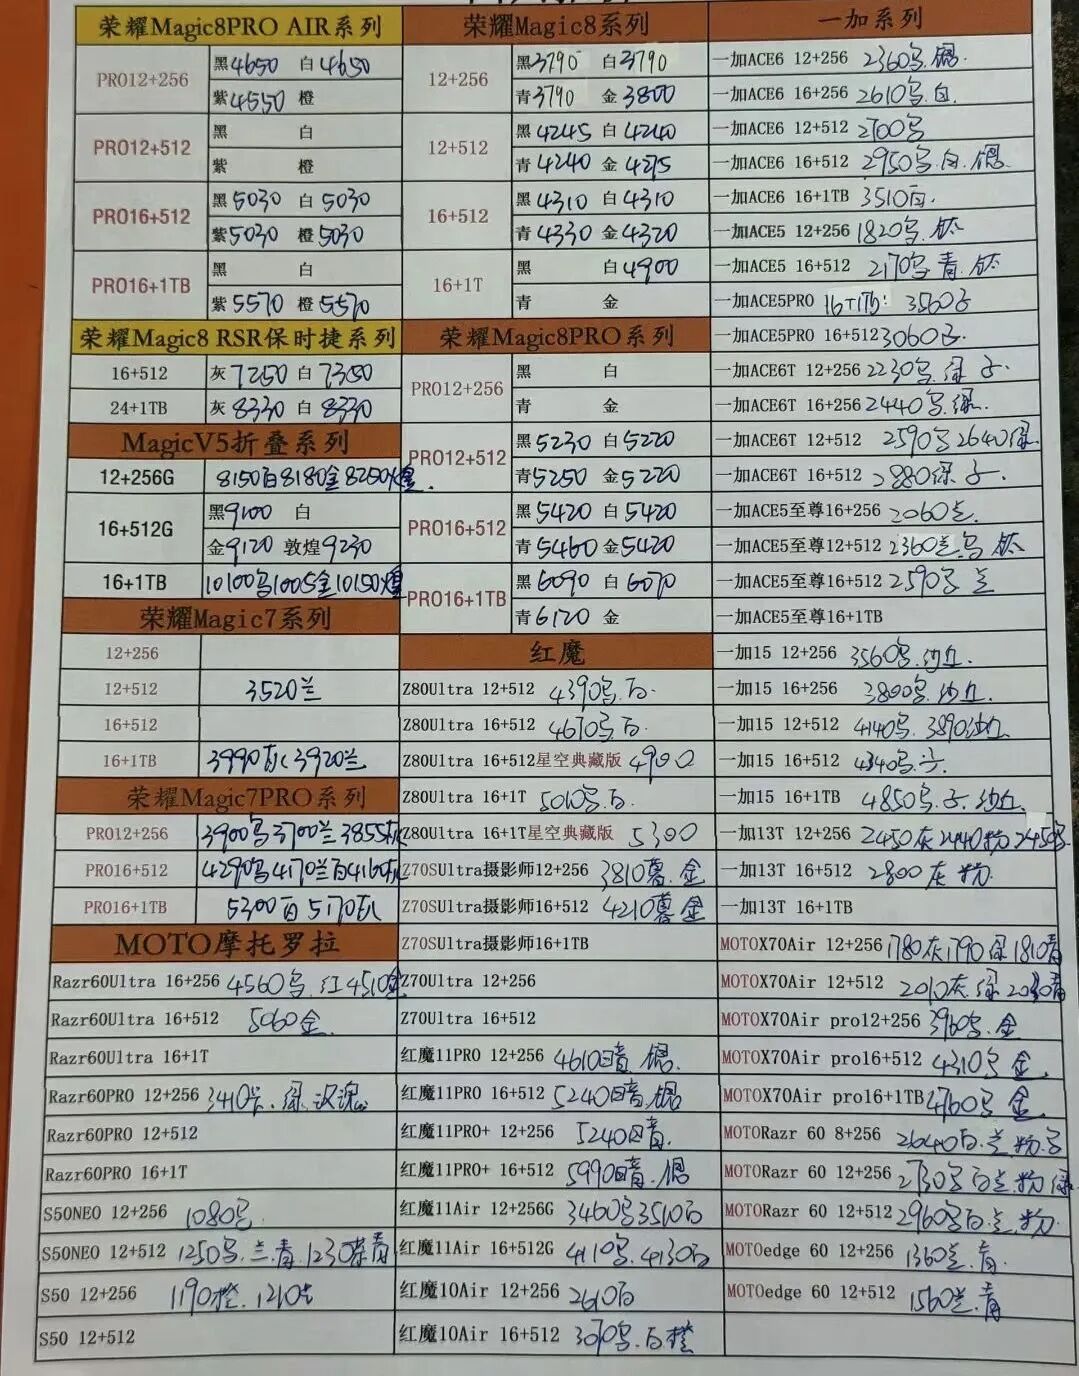 荣耀Magic8PRO AIR系列
PRO12+256 黑4650 白4650
紫4550 橙
PRO12+512 黑 白
紫 橙
PRO16+512 黑5030 白5030
紫5030 橙5030
PRO16+1TB 黑 白
紫5570 橙5570
荣耀Magic8 RSR保时捷系列
16+512 灰7250 白7350
24+1TB 灰8330 白8330
MagicV5折叠系列
12+256G 8150白8180金8250煌
16+512G 黑9100 白
金9120 敦煌9230
16+1TB 10100乌1005金10150煌
荣耀Magic7系列
12+256
12+512 3520兰
16+512
16+1TB 3990 3920兰
荣耀Magic7PRO系列
PRO12+256 3900乌3700兰3855
PRO16+512 4290乌4170兰白4160
PRO16+1TB 5300白5170
MOTO摩托罗拉
Razr60Ultra 16+256 4560乌.红4510金
Razr60Ultra 16+512 5060金.
Razr60Ultra 16+1T
Razr60PRO 12+256 3410 绿
Razr60PRO 12+512
Razr60PRO 16+1T
S50NEO 12+256 1080
S50NEO 12+512 1250乌.兰.青.1230 青
S50 12+256 1190橙.1210
S50 12+512
荣耀Magic8系列
12+256 黑3790 白3790
青3790 金3800
12+512 黑4245 白4240
青4240 金4275
16+512 黑4310 白4310
青4330 金4320
16+1T 黑 白4900
青 金
荣耀Magic8PRO系列
PRO12+256 黑 白
青 金
PRO12+512 黑5230 白5220
青5250 金5220
PRO16+512 黑5420 白5420
青5460 金5420
PRO16+1TB 黑6090 白6070
青6120 金
红魔
Z80Ultra 12+512 4390乌.白.
Z80Ultra 16+512 4670乌.白.
Z80Ultra 16+512星空典藏版 4900
Z80Ultra 16+1T 5010乌.白.
Z80Ultra 16+1T星空典藏版 5300
Z70SUltra摄影师12+256 3810暮.金
Z70SUltra摄影师16+512 4210暮金
Z70SUltra摄影师16+1TB
Z70Ultra 12+256
Z70Ultra 16+512
红魔11PRO 12+256 4610暗.银.
红魔11PRO 16+512 5240暗.银
红魔11PRO+ 12+256 5240暗.
红魔11PRO+ 16+512 5990暗.银
红魔11Air 12+256G 3460乌3510白
红魔11Air 16+512G 4110乌.4130白
红魔10Air 12+256 2610白
红魔10Air 16+512 3070乌.白橙
一加系列
一加ACE6 12+256 2360乌.银.
一加ACE6 16+256 2610乌.白.
一加ACE6 12+512 2700乌
一加ACE6 16+512 2950乌.白.银.
一加ACE6 16+1TB 3510白.
一加ACE5 12+256 1820乌.钛
一加ACE5 16+512 2170乌青.钛
一加ACE5PRO 16+1TB: 3560子
一加ACE5PRO 16+512 3060子.
一加ACE6T 12+256 2230乌.绿 子.
一加ACE6T 16+256 2440乌.绿.
一加ACE6T 12+512 2590乌2640绿.
一加ACE6T 16+512 2880绿 子.
一加ACE5至尊16+256 2060兰.
一加ACE5至尊12+512 2360兰.乌 钛
一加ACE5至尊16+512 2590乌 兰
一加ACE5至尊16+1TB
一加15 12+256 3560乌.沙丘.
一加15 16+256 3800乌.沙丘.
一加15 12+512 4140乌.3890沙丘
一加15 16+512 4340乌.
一加15 16+1TB 4850乌.子.沙丘
一加13T 12+256 2450灰2440粉2450乌
一加13T 16+512 2800灰 粉.
一加13T 16+1TB
MOTOX70Air 12+256 1780灰1790绿1810青
MOTOX70Air 12+512 2010灰.绿2030青
MOTOX70Air pro12+256 3960乌.金
MOTOX70Air pro16+512 4310乌金.
MOTOX70Air pro16+1TB 4760乌 金.
MOTORazr 60 8+256 2640白.兰.粉.乌
MOTORazr 60 12+256 2730乌白兰粉绿
MOTORazr 60 12+512 2960乌白.兰.粉.
MOTOedge 60 12+256 1360兰.青.
MOTOedge 60 12+512 1560兰.青